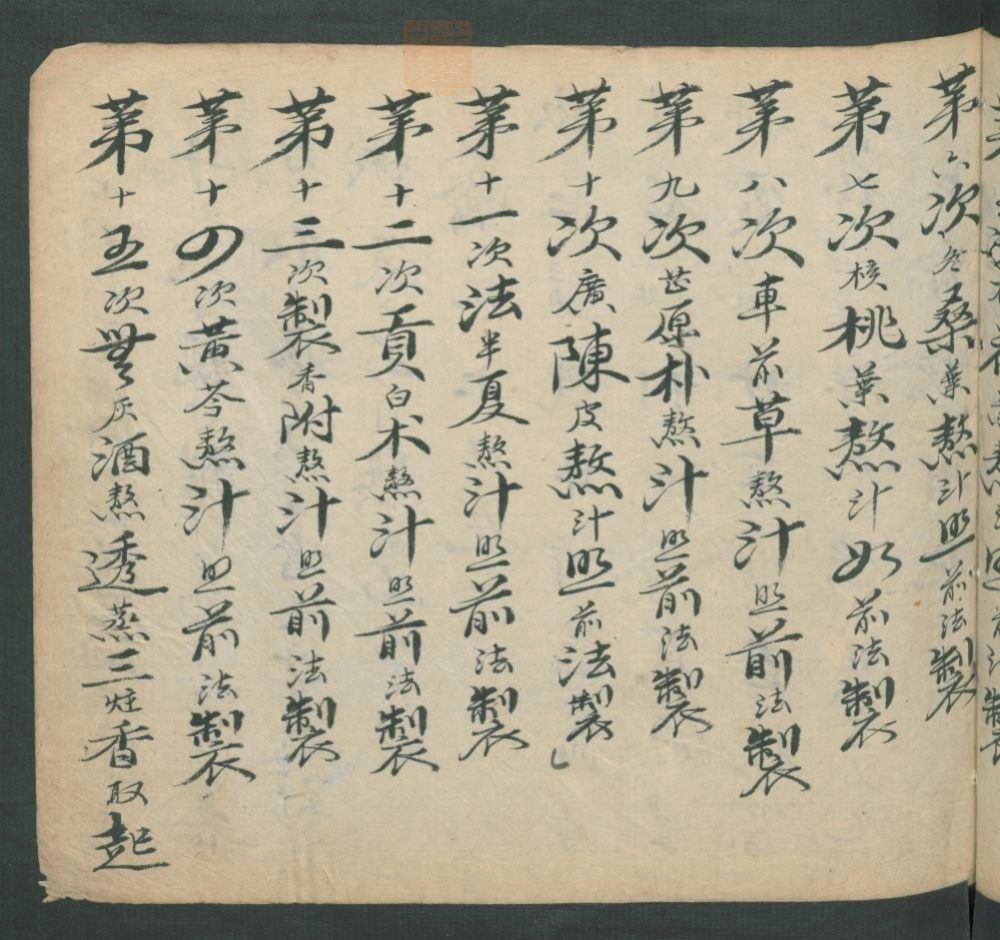 第六次冬桑葉熬汁照前法製
第七次核桃葉熬汁如前法製
第八次車前草熬汁照前法製
第九次芷厚朴熬汁照前法製
第十次廣陳皮熬汁照前法製
第十一次法半夏熬汁照前法製
第十二次貢白朮熬汁照前法製
第十三次製香附熬汁照前法製
第十四次黃芩熬汁照前法製
第十五次無灰酒熬透蒸三炷香取起